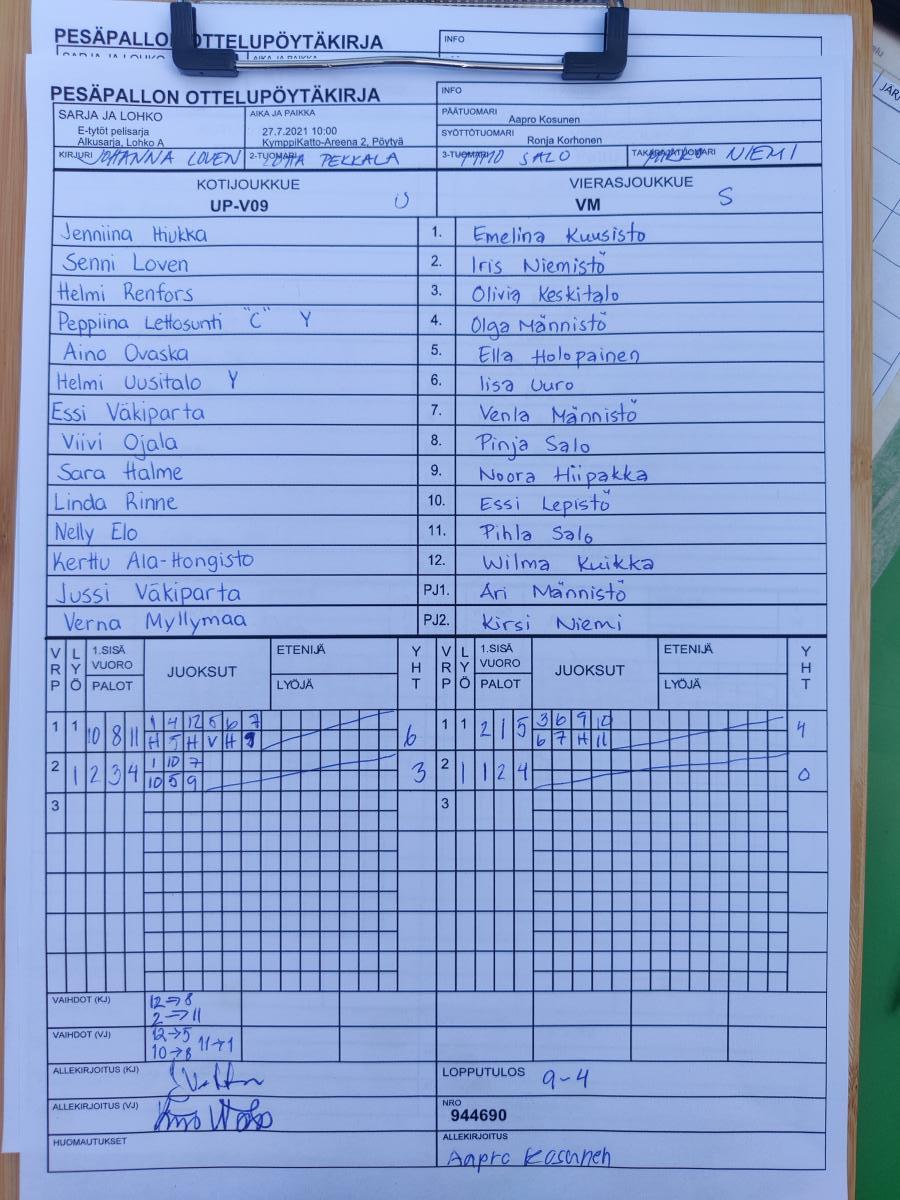 PESÄPALLON OTTELUPÖYTÄKIRJA
INFO
PESÄPALLON OTTELUPÖYTÄKIRJA
INFO
SARJA JA LOHKO
E-tytöt pelisarja
Alkusarja, Lohko A
AIKA JA PAIKKA
27.7.2021 10:00
KymppiKatto-Areena 2, Pöytyä
PÄÄTUOMARI
Aapro Kosunen
SYÖTTÖTUOMARI
Ronja Korhonen
KIRJURI JOHANNA LOVEN
2-TUOMARI PEKKALA
3-TUOMARI SALO
TAKARAJATUOMARI NIEMI
KOTIJOUKKUE
UP-V09 U
VIERASJOUKKUE
VM S
Jenniina Hiukka 1. Emelina Kuusisto
Senni Loven 2. Iris Niemistö
Helmi Renfors 3. Olivia Keskitalo
Peppiina Lettosunti "C" Y 4. Olga Männistö
Aino Ovaska 5. Ella Holopainen
Helmi Uusitalo Y 6. Iisa Uuro
Essi Väkiparta 7. Venla Männistö
Viivi Ojala 8. Pinja Salo
Sara Halme 9. Noora Hiipakka
Linda Rinne 10. Essi Lepistö
Nelly Elo 11. Pihla Salo
Kerttu Ala-Hongisto 12. Wilma Kuikka
Jussi Väkiparta PJ1. Ari Männistö
Verna Myllymaa PJ2. Kirsi Niemi
VRP LYÖ 1.SISÄ VUORO PALOT JUOKSUT ETENIJÄ LYÖJÄ YHT VRP LYÖ 1.SISÄ VUORO PALOT JUOKSUT ETENIJÄ LYÖJÄ YHT
1 1 10 8 11 1 4 12 5 6 7 6 1 1 2 1 5 3 6 9 10 4
H 5 H V H 9 6 7 H 11
2 1 2 3 4 1 10 7 3 2 1 1 2 4 0
10 5 9
3 3
VAIHDOT (KJ) 12→8
2→11
VAIHDOT (VJ) 12→5
10→8 11→1
ALLEKIRJOITUS (KJ)
LOPPUTULOS 9-4
ALLEKIRJOITUS (VJ)
NRO
944690
HUOMAUTUKSET
ALLEKIRJOITUS
Aapro Kosunen